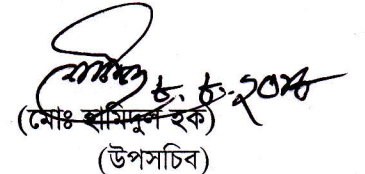 ৮.৮.২০১৮
(মোঃ হামিদুল হক)
(উপসচিব)